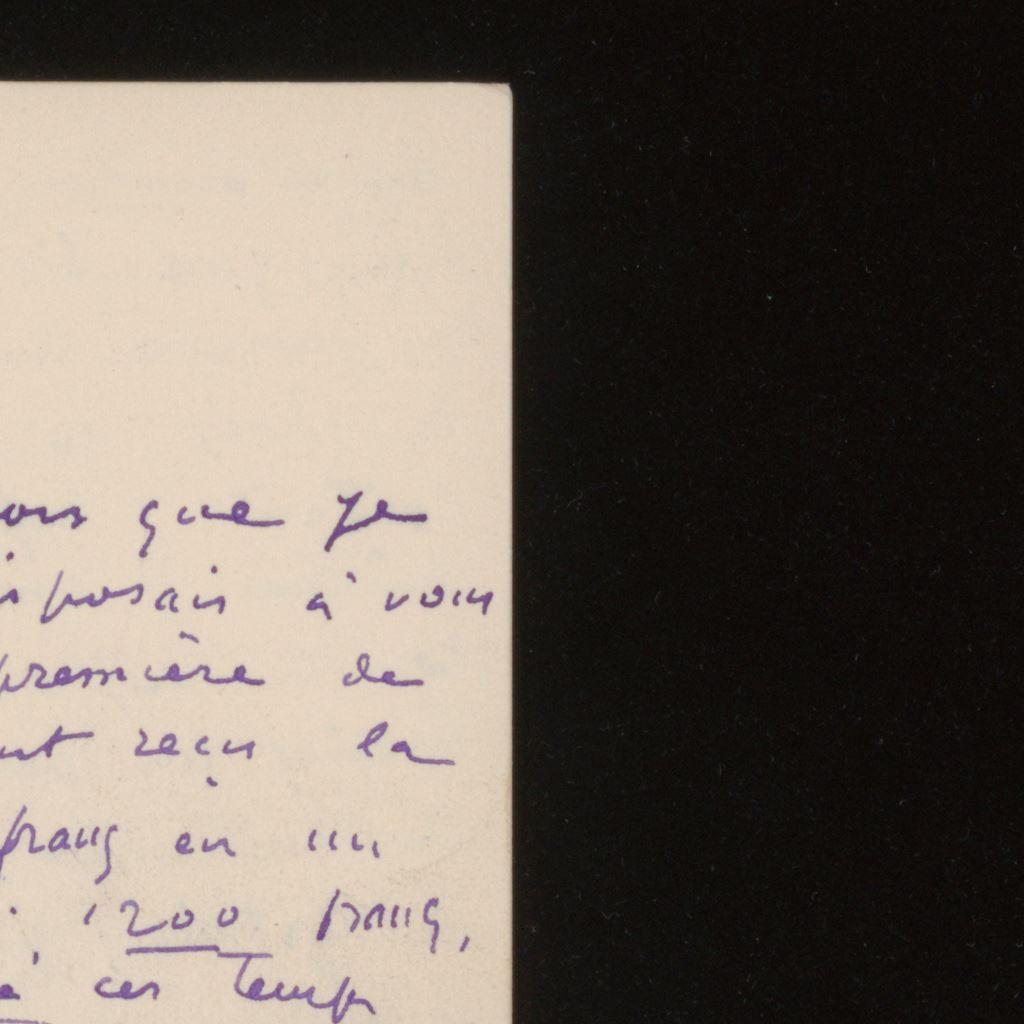 ors que je
isposais à vous
première de
nt reçu la
francs en un
1200 francs,
à ces temps